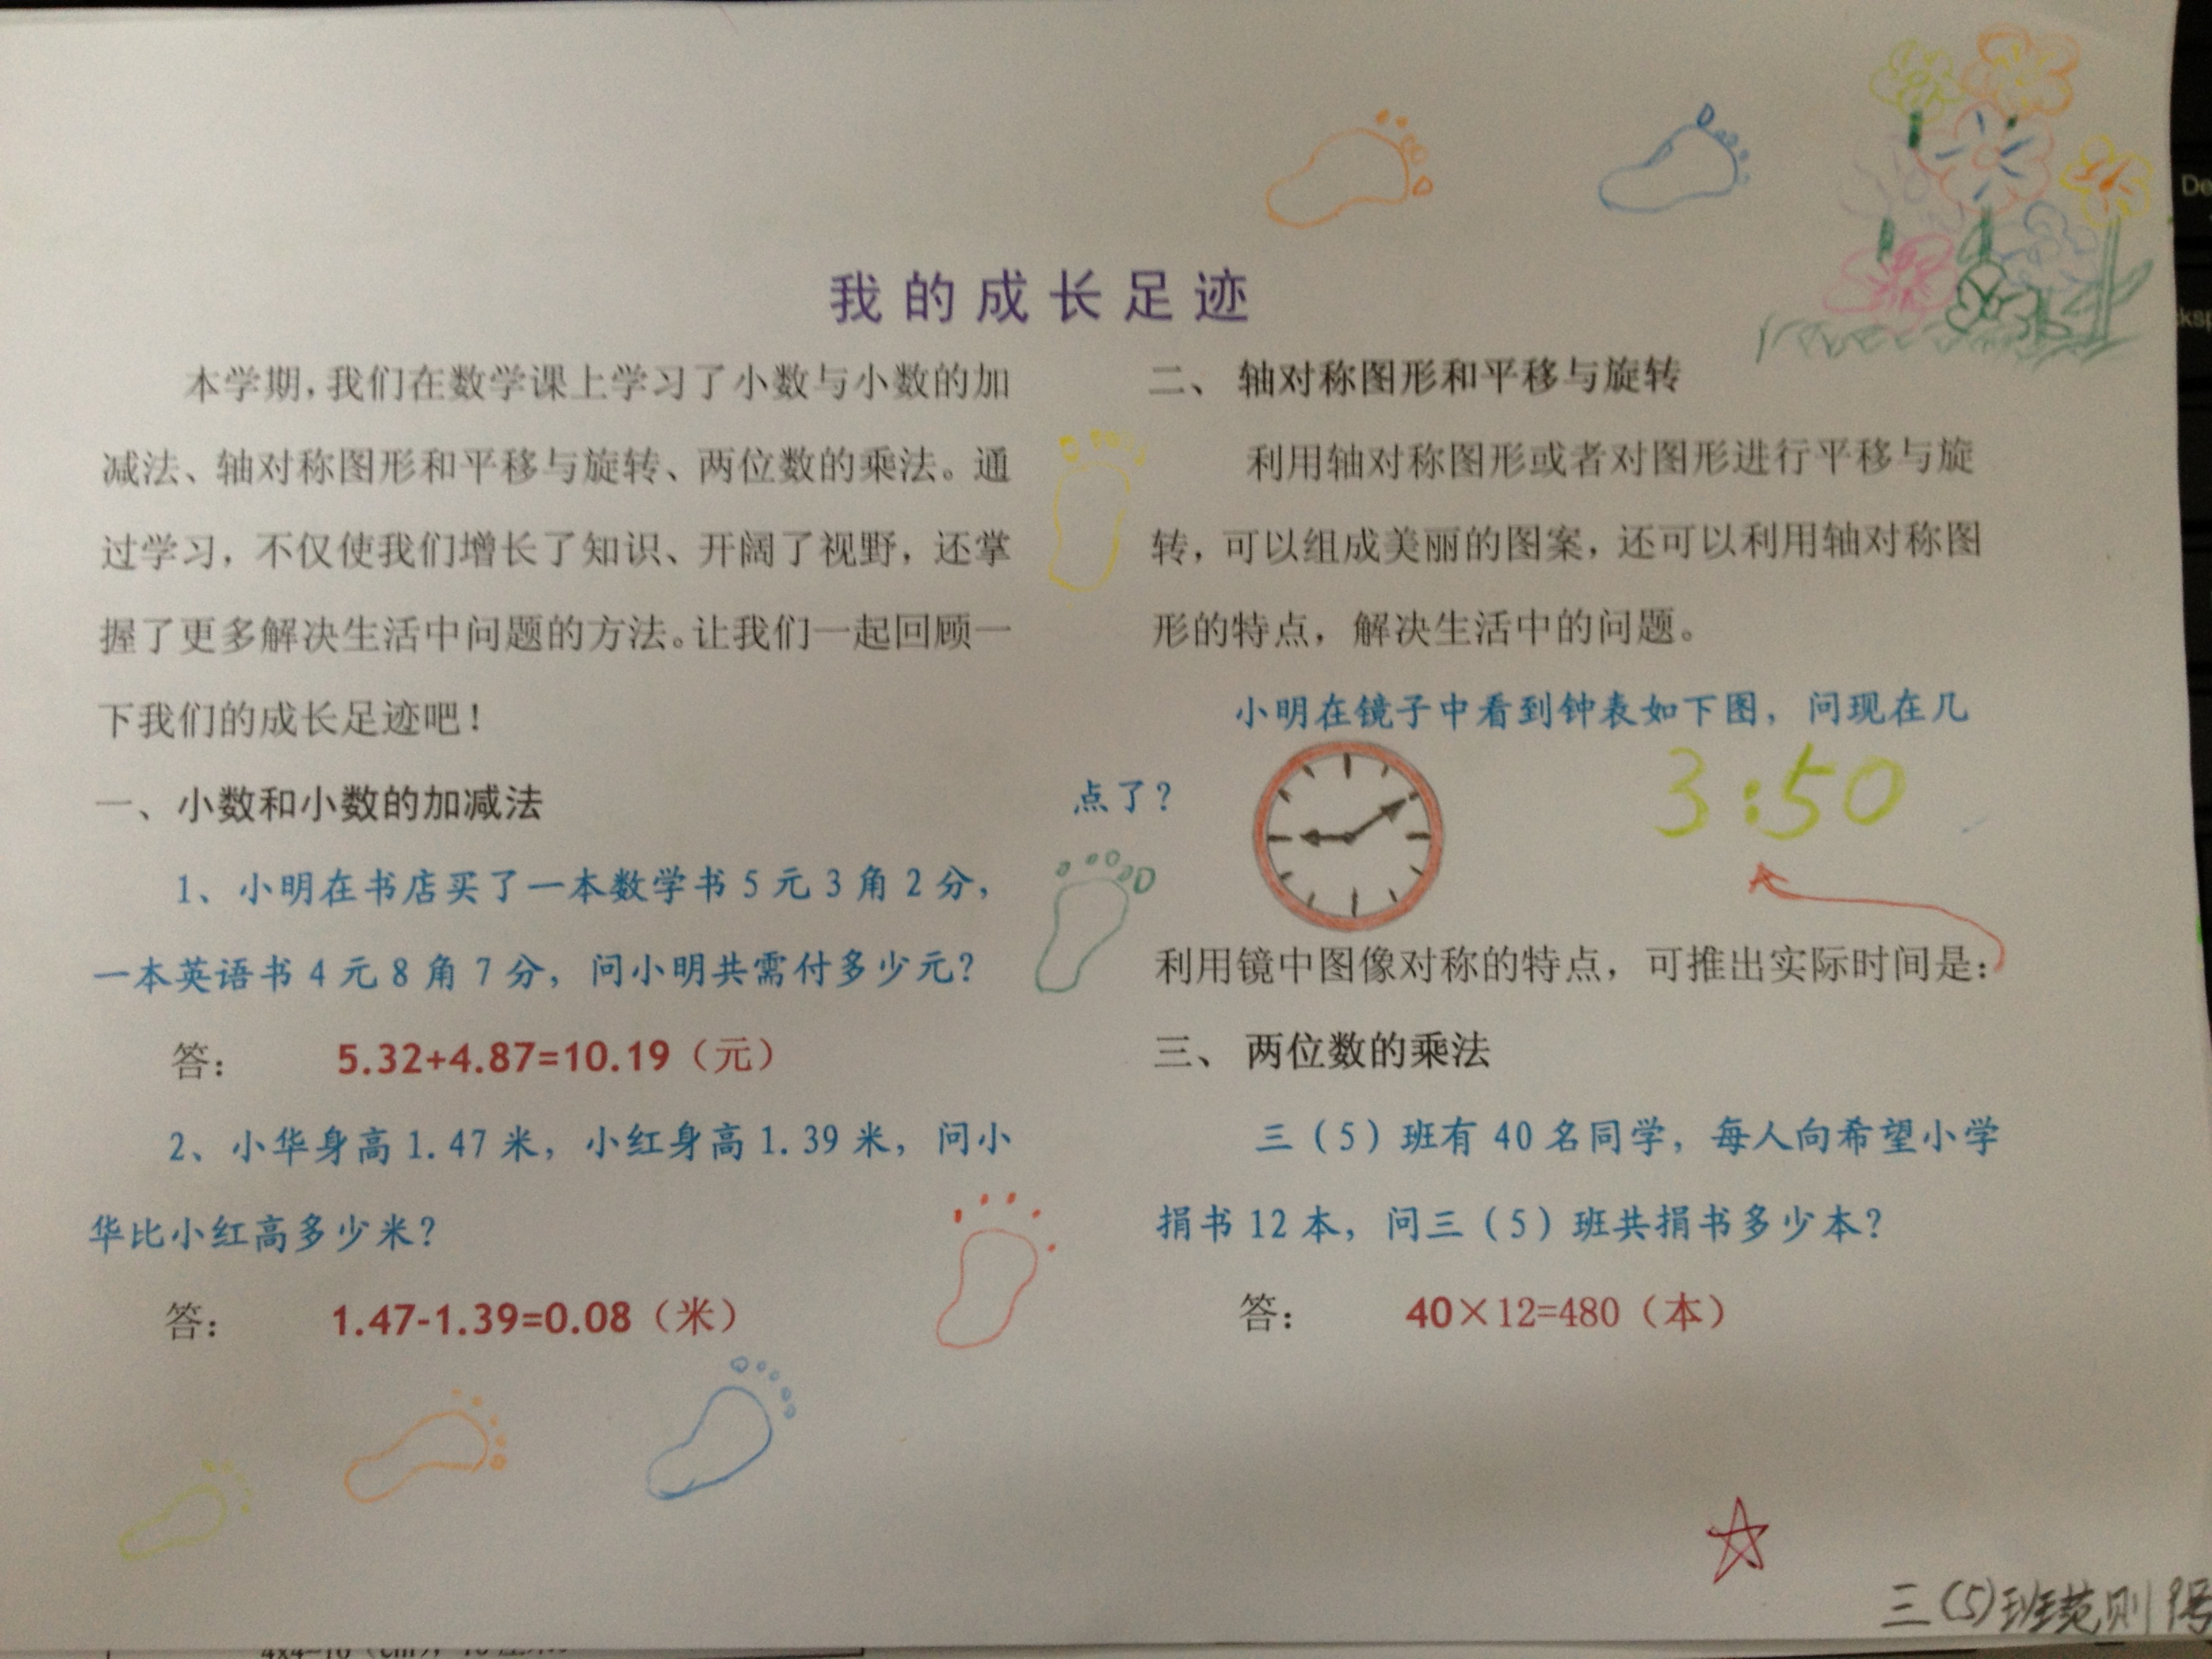 我的成长足迹
本学期，我们在数学课上学习了小数与小数的加
减法、轴对称图形和平移与旋转、两位数的乘法。通
过学习，不仅使我们增长了知识、开阔了视野，还掌
握了更多解决生活中问题的方法。让我们一起回顾一
下我们的成长足迹吧！
一、小数和小数的加减法
1、小明在书店买了一本数学书5元3角2分，
一本英语书4元8角7分，问小明共需付多少元？
答： 5.32+4.87=10.19（元）
2、小华身高1.47米，小红身高1.39米，问小
华比小红高多少米？
答： 1.47-1.39=0.08（米）
二、 轴对称图形和平移与旋转
利用轴对称图形或者对图形进行平移与旋
转，可以组成美丽的图案，还可以利用轴对称图
形的特点，解决生活中的问题。
小明在镜子中看到钟表如下图，问现在几
点了？
3:50
利用镜中图像对称的特点，可推出实际时间是：
三、 两位数的乘法
三（5）班有40名同学，每人向希望小学
捐书12本，问三（5）班共捐书多少本？
答： 40×12=480（本）
三(5)班
De